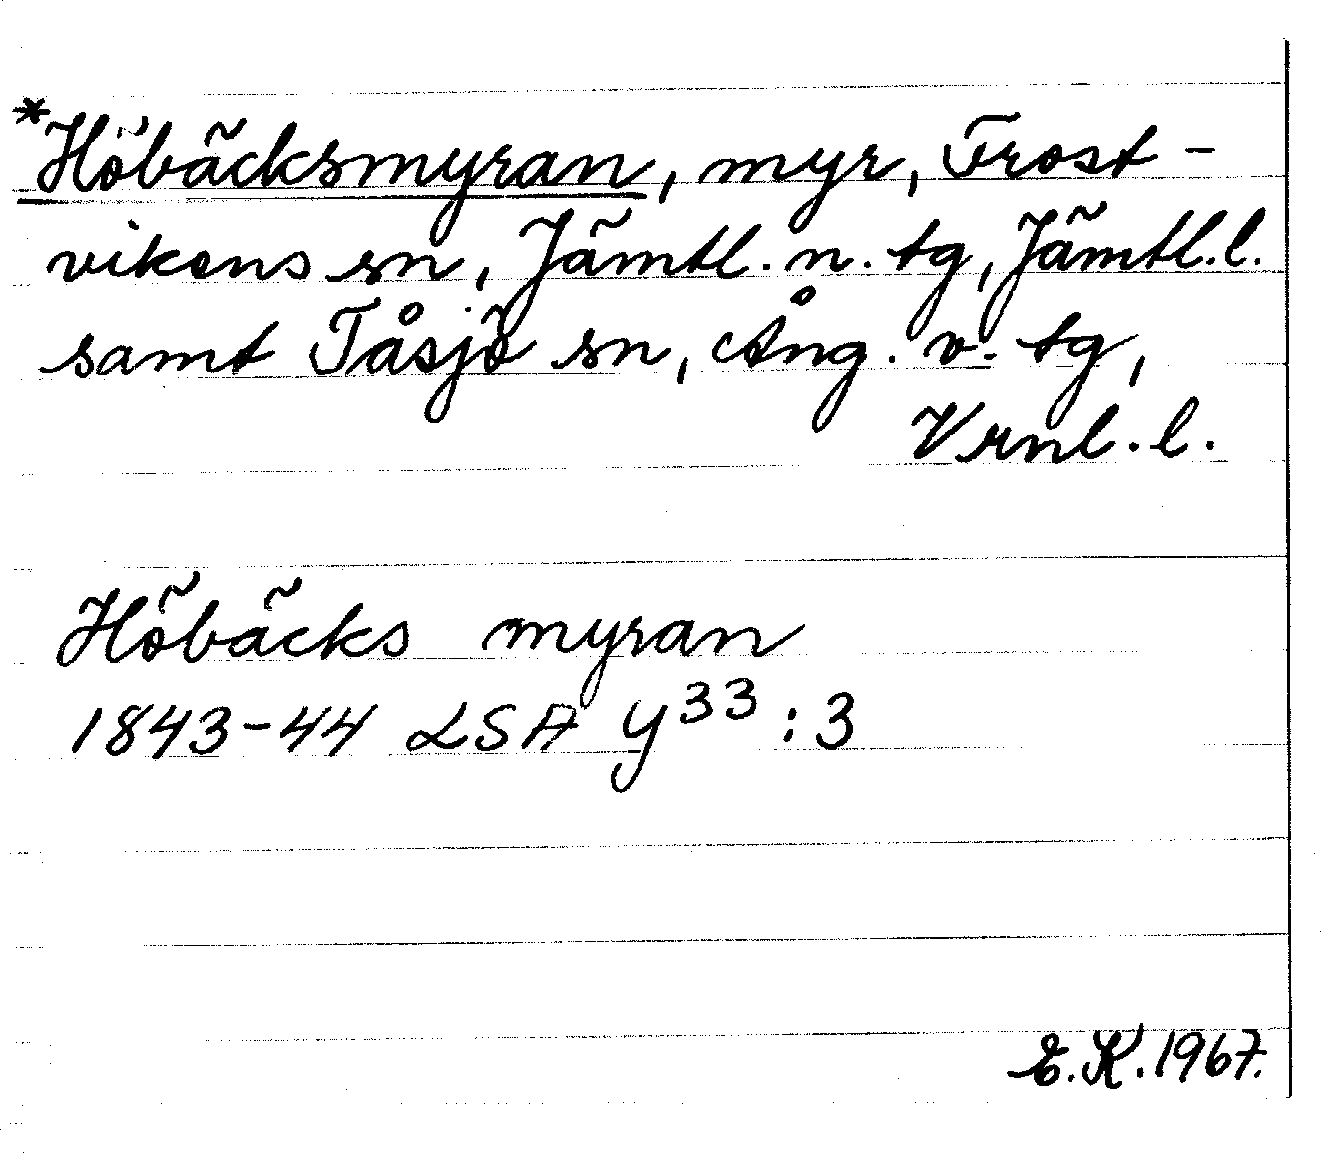 *Höbäcksmyran, myr, Frost-
vikens sn, Jämtl. n. tg, Jämtl. l.
samt Tåsjö sn, Ång. v. tg,
Vrnl. l.
Höbäcks myran
1843-44 LSA Y³³ : 3
E.K. 1967.